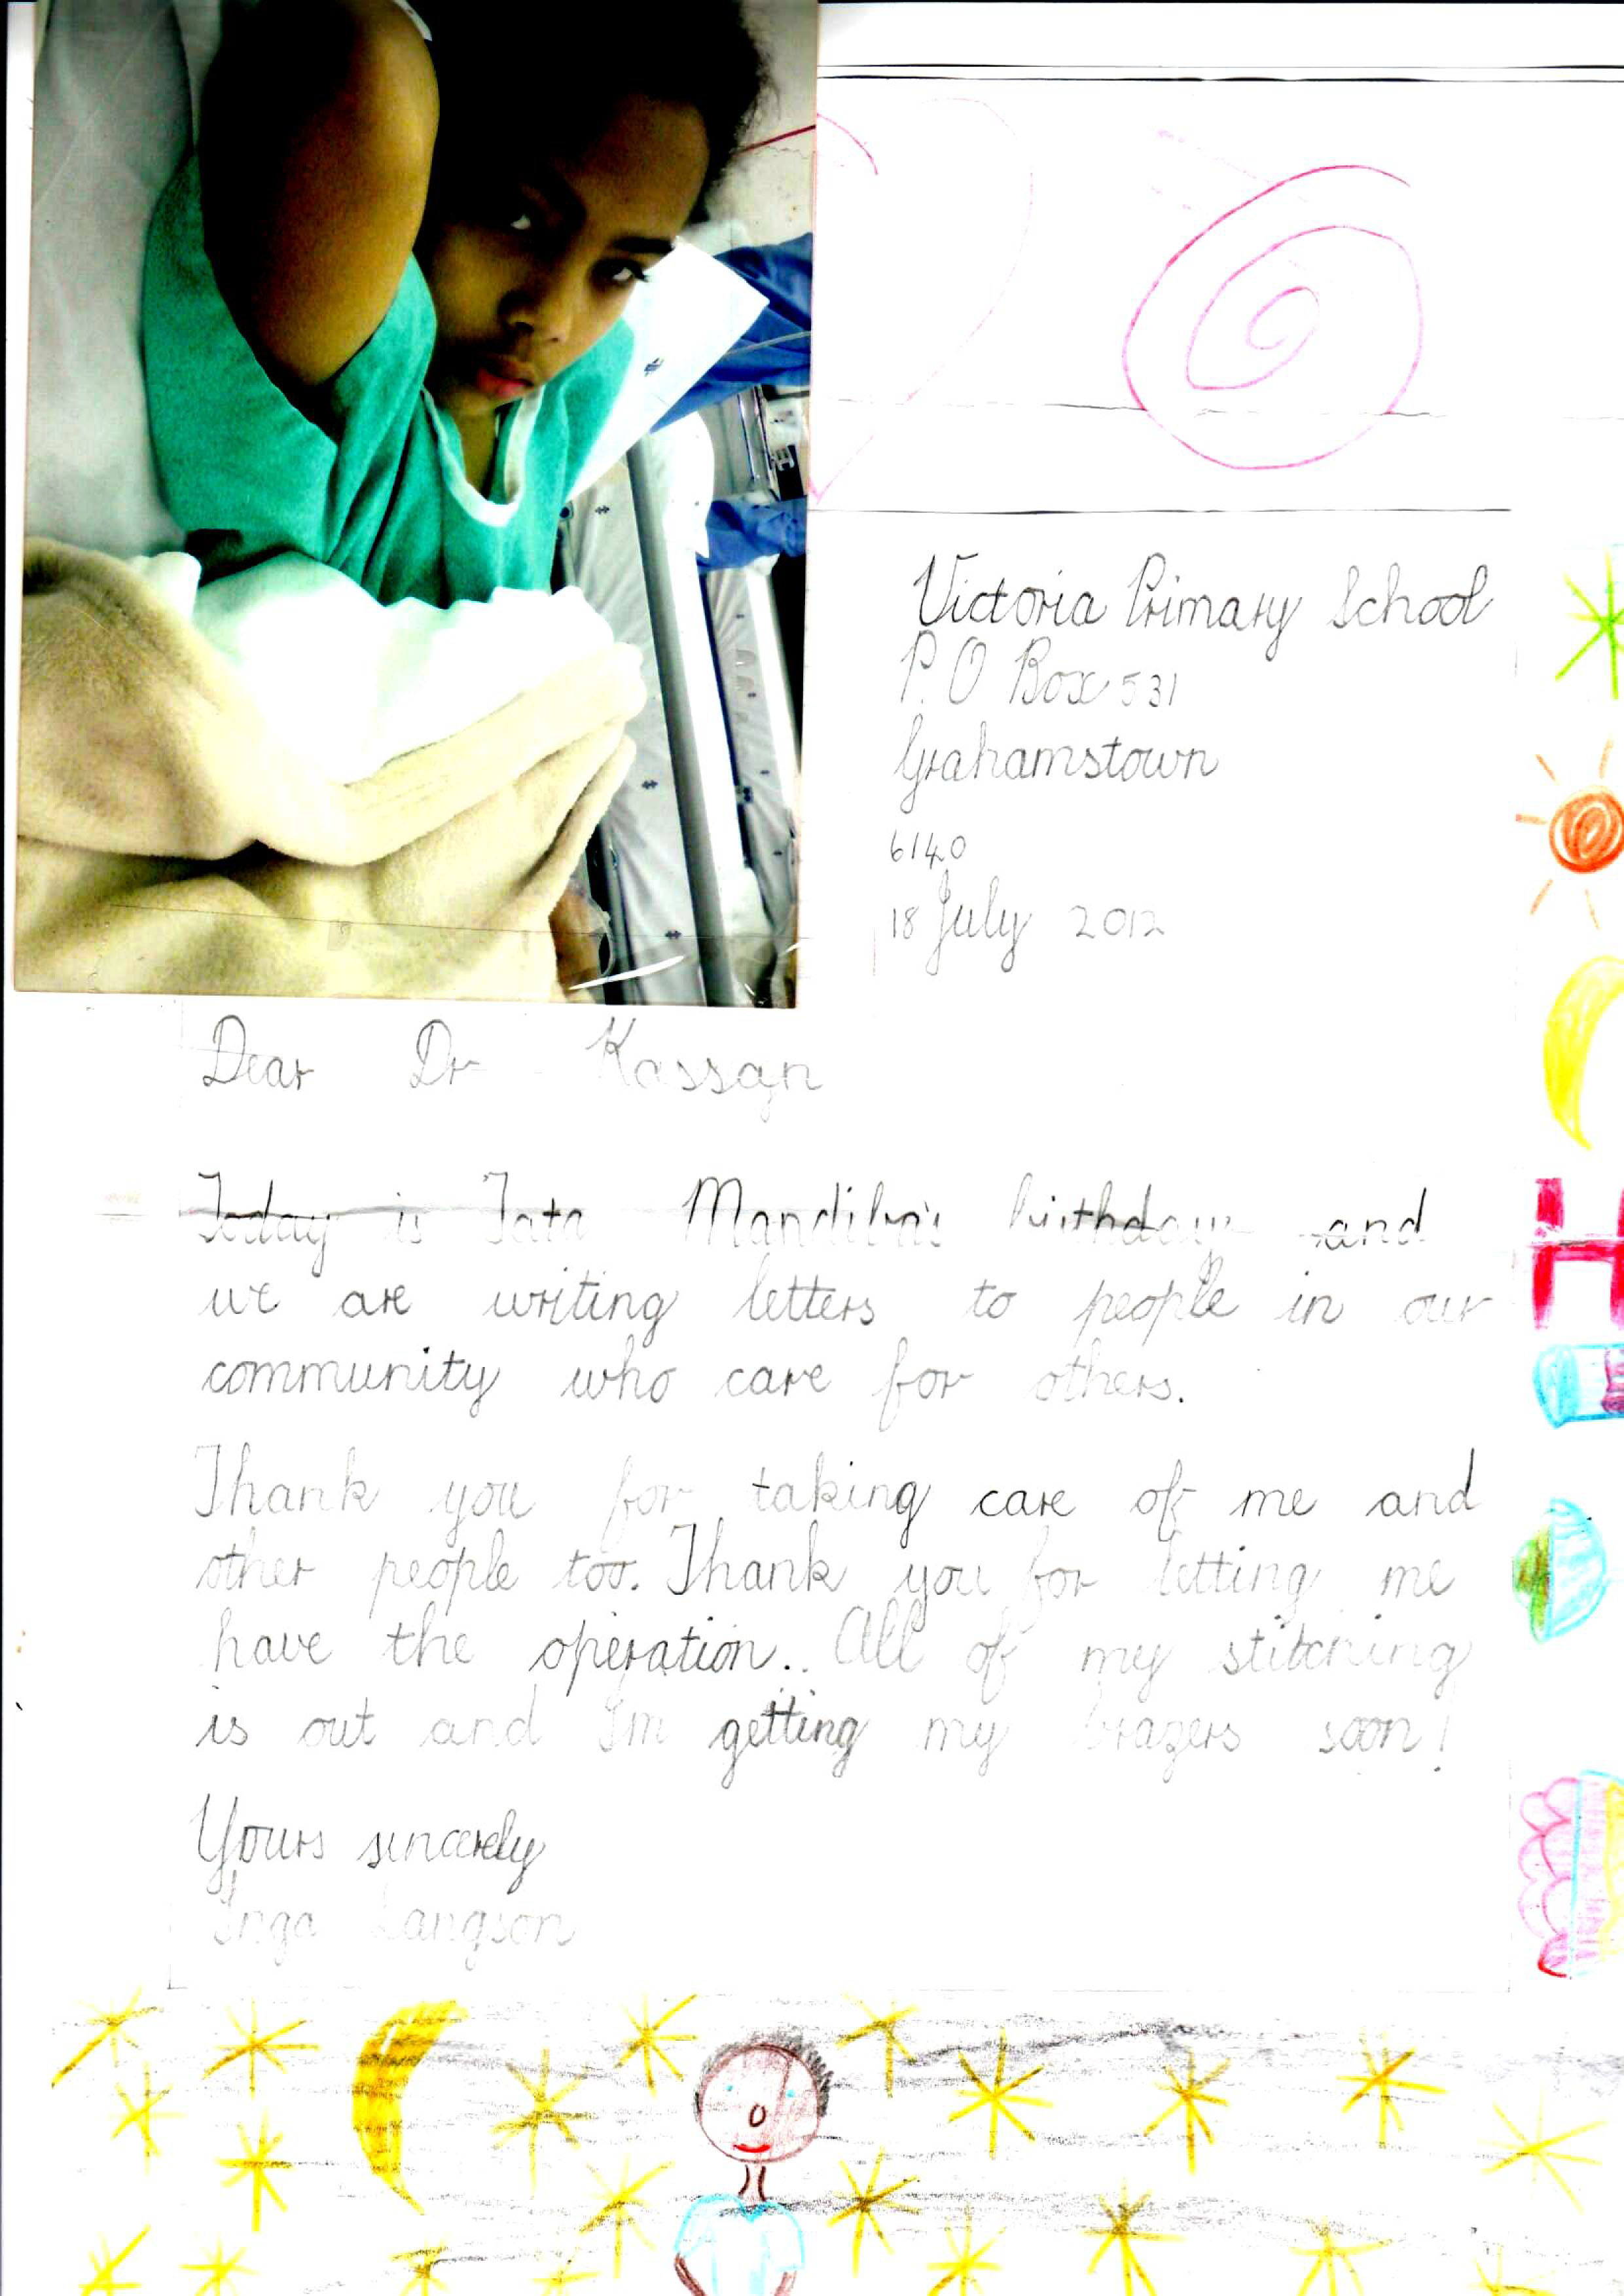 Victoria Primary School
P.O Box 531
Grahamstown
6140
18 July 2012
Dear Dr Kassan
Today is Tata Mandiba's birthday and
we are writing letters to people in our
community who care for others.
Thank you for taking care of me and
other people too. Thank you for letting me
have the operation.. All of my stitching
is out and I'm getting my brazers soon!
Yours sincerely
Inga Langson
H